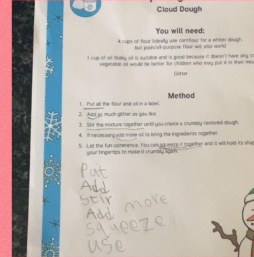 Cloud Dough
You will need:
4 cups of flour (ideally use cornflour for a whiter dough,
but plain/all-purpose flour will also work)
1 cup of oil (baby oil is suitable and is good because it doesn't have any
vegetable oil would be better for children who may put it in their
Glitter
Method
1. Put all the flour and oil in a bowl.
2. Add as much glitter as you like.
3. Stir the mixture together until you create a crumbly textured dough.
4. If necessary add more oil to bring the ingredients together.
5. Let the fun commence. You can squeeze it together and it will hold its
your fingertips to make it crumbly again.
Put
Add
Stir
Add more
squeeze
use